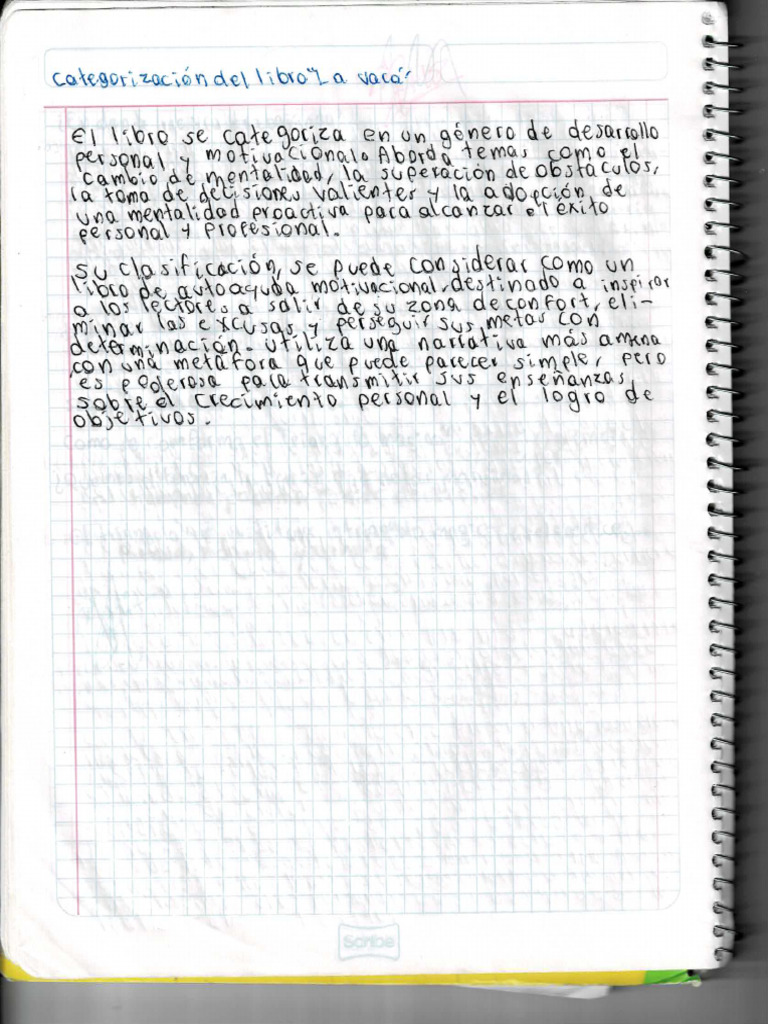 Categorización del libro "La vaca"
El libro se categoriza en un género de desarrollo
personal y motivacional. Aborda temas como el
cambio de mentalidad, la superación de obstáculos,
la toma de decisiones valientes y la adopción de
una mentalidad proactiva para alcanzar el éxito
personal y profesional.
Su clasificación, se puede considerar como un
libro de autoayuda motivacional, destinado a inspirar
a los lectores a salir de su zona de confort, eli-
minar las excusas y perseguir sus metas con
determinación. Utiliza una narrativa más amena
con una metáfora que puede parecer simple, pero
es poderosa para transmitir sus enseñanzas
sobre el crecimiento personal y el logro de
objetivos.
Scribe